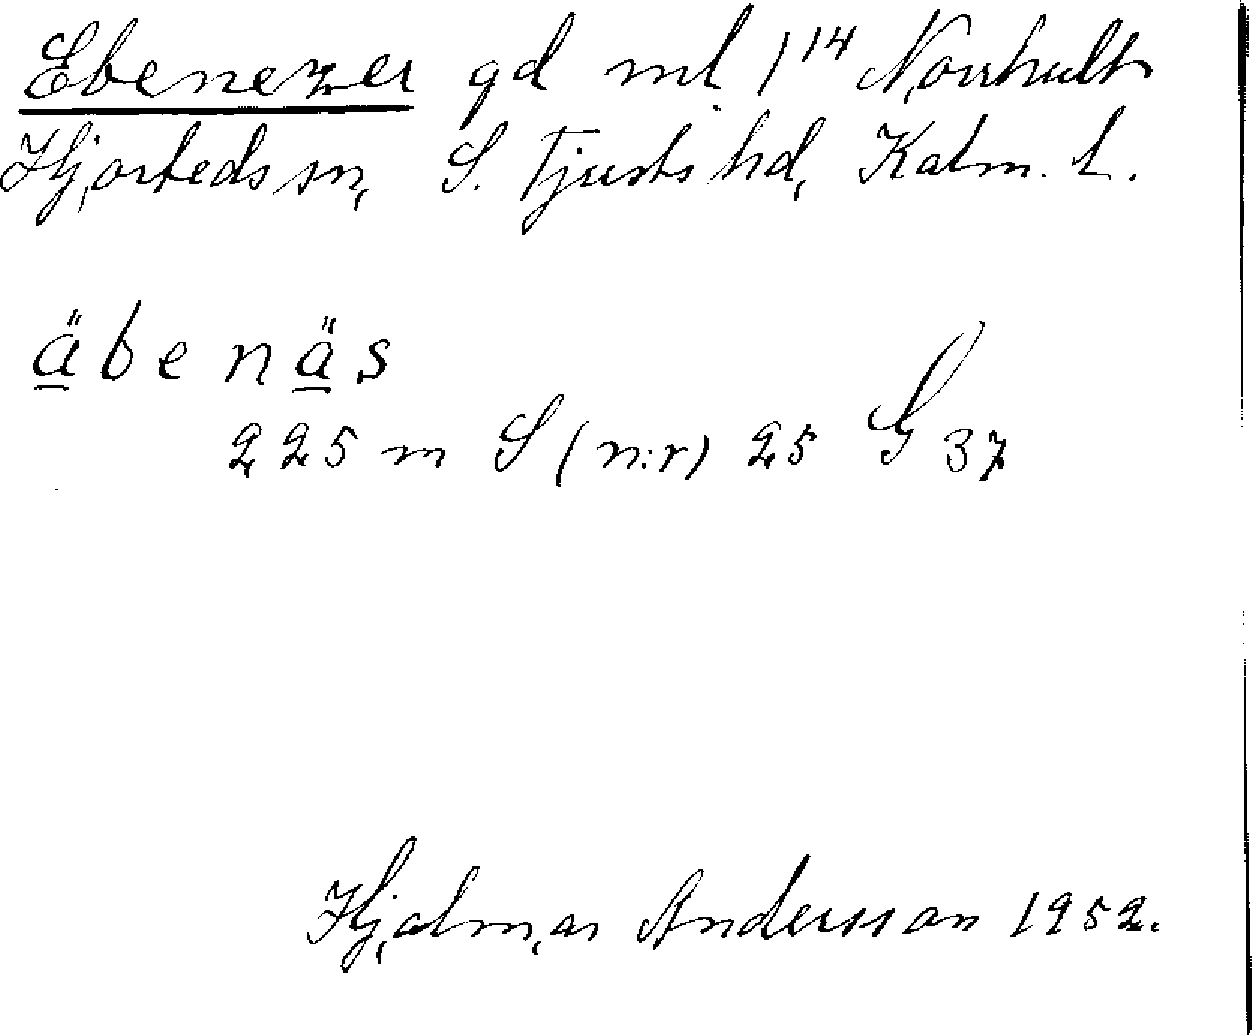 Ebenezer gd mtl 1¹⁴ Norrhult
Hjorteds sn, S. Tjusts hd, Kalm. L.
äbenäs
225 m S (n:r) 25 G 37
Hjalmar Andersson 1952.